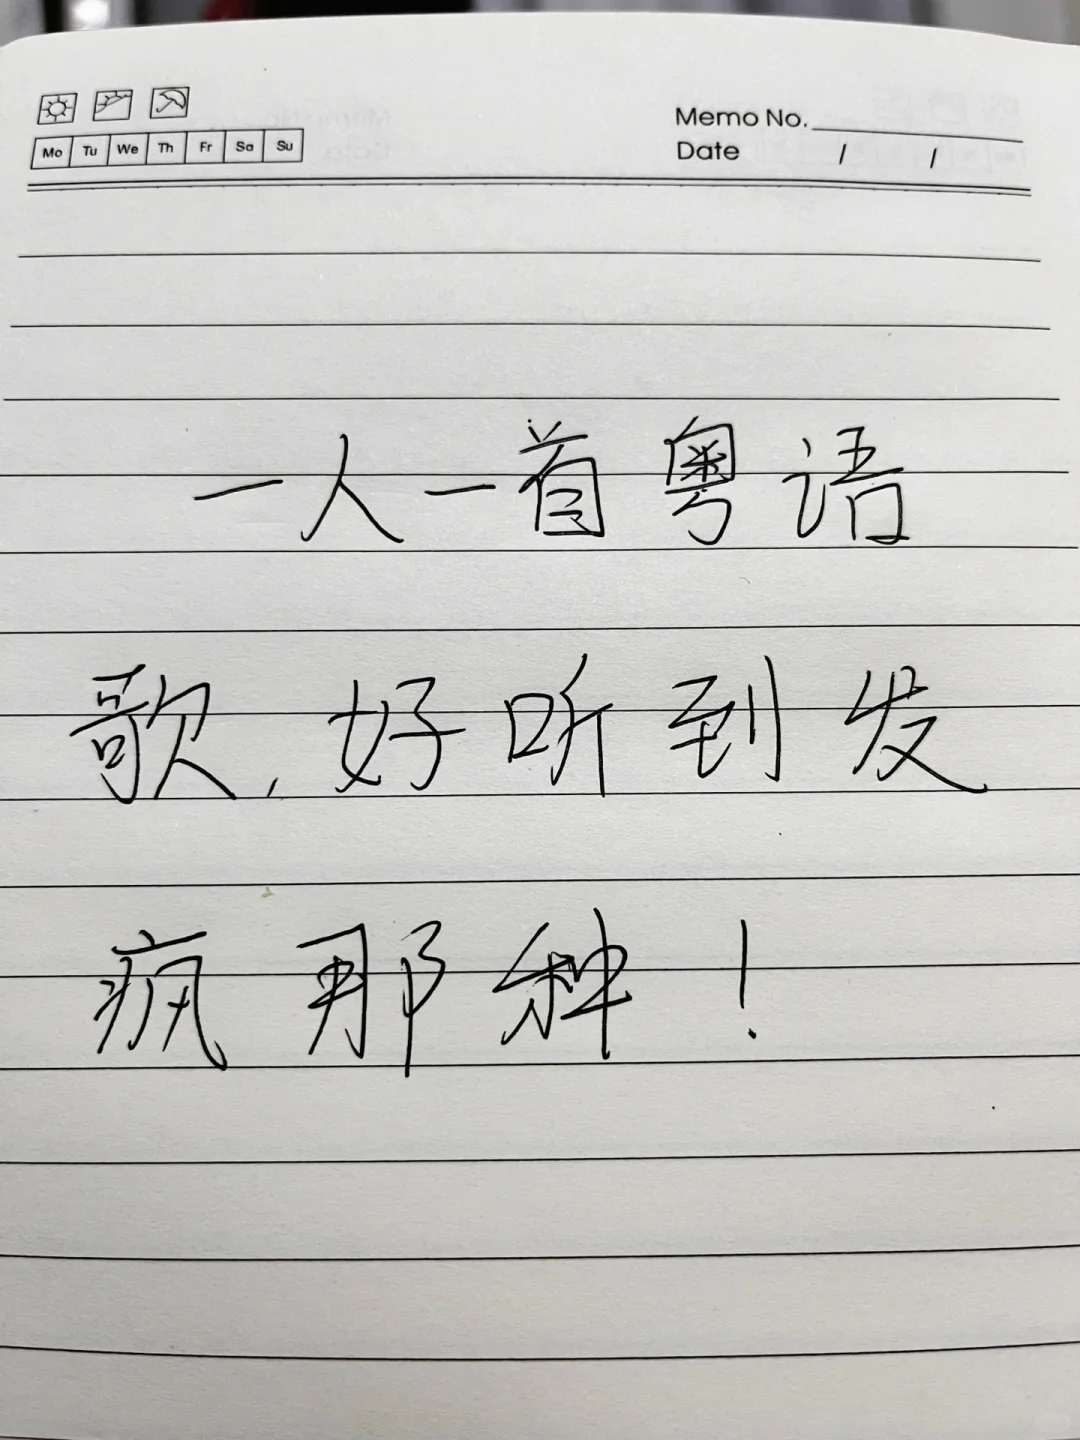 Memo No.
Mo Tu We Th Fr Sa Su
Date / /
一人一首粤语
歌,好听到发
疯那种!